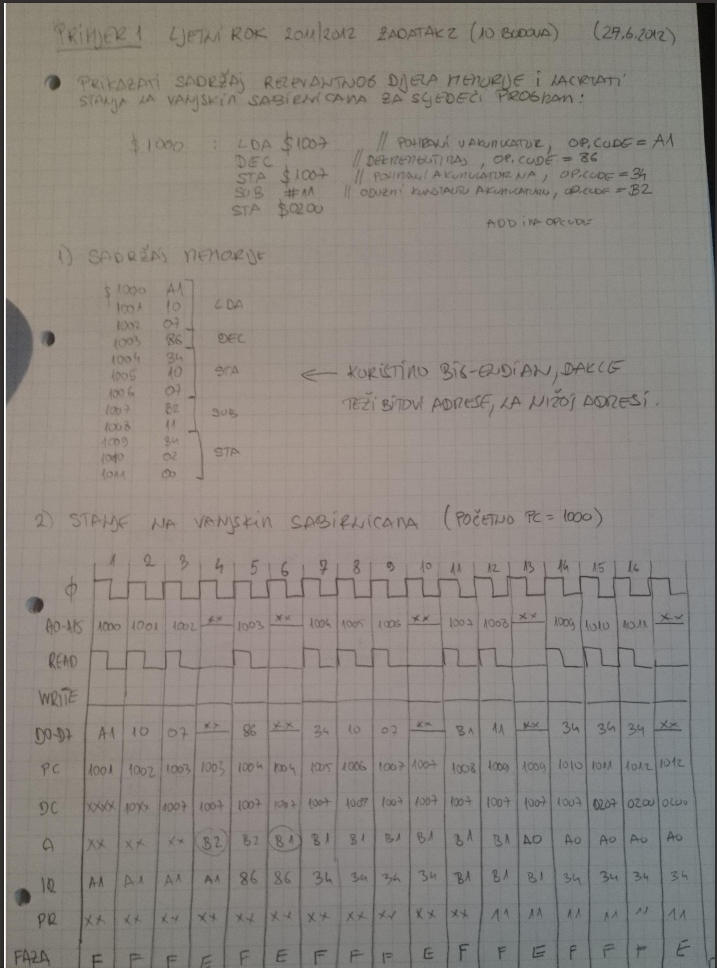 PRIMJER 1 LJETNI ROK 2011/2012 ZADATAK 2 (10 BODOVA) (29.6.2012)
PRIKAZATI SADRŽAJ RELEVANTNOG DIJELA MEMORIJE I NACRTATI
STANJA NA VANJSKIM SABIRNICAMA ZA SLJEDEĆI PROGRAM:
$1000 : LDA $1007 // POHRANI U AKUMULATOR, OP.CODE = A1
DEC // DEKREMENTIRAJ, OP.CODE = 86
STA $1007 // POHRANI AKUMULATOR NA, OP.CODE = 34
SUB #11 // ODUZMI KONSTANTU AKUMULATORU, OP.CODE = B2
STA $0200
ADD IMA OPCODE
1) SADRŽAJ MEMORIJE
$1000 A1
1001 10 LDA
1002 07
1003 86 DEC
1004 34
1005 10 STA
1006 07
1007 B2 SUB
1008 11
1009 34
1010 02 STA
1011 00
← KORISTIMO BIG-ENDIAN, DAKLE
TEŽI BITOVI ADRESE, NA NIŽOJ ADRESI.
2) STANJE NA VANJSKIM SABIRNICAMA (POČETNO PC = 1000)
1 2 3 4 5 6 7 8 9 10 11 12 13 14 15 16
Φ
A0-A15 1000 1001 1002 xx 1003 xx 1004 1005 1006 xx 1007 1008 xx 1009 1010 1011 xx
READ
WRITE
D0-D7 A1 10 07 xx 86 xx 34 10 07 xx B1 11 xx 34 34 34 xx
PC 1001 1002 1003 1003 1004 1004 1005 1006 1007 1007 1008 1009 1009 1010 1011 1012 1012
DC XXXX 10XX 1007 1007 1007 1007 1007 1007 1007 1007 1007 1007 1007 1007 0207 0200 0200
A xx xx xx B2 B2 B1 B1 B1 B1 B1 B1 B1 A0 A0 A0 A0 A0
IR A1 A1 A1 A1 86 86 34 34 34 34 B1 B1 B1 34 34 34 34
PR xx xx xx xx xx xx xx xx xx xx xx 11 11 11 11 11 11
FAZA F F F E F E F F F E F F E F F F E